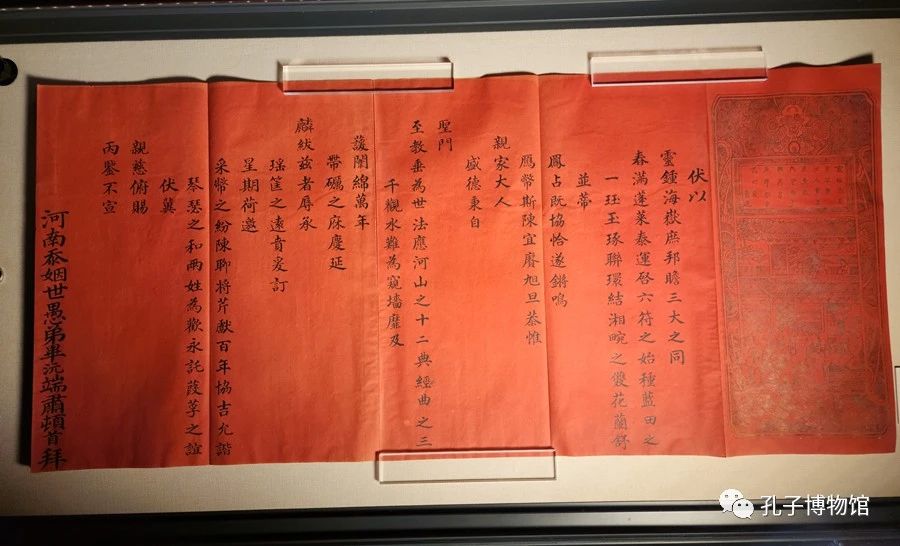 伏以
靈鍾海嶽庶邦瞻三大之同
春滿蓬萊泰運啓六符之始種藍田之
一珏玉琢聯環結湘畹之雙花蘭舒
並蒂
鳳占既協恰遂鏘鳴
鴈幣斯陳宜虜旭旦恭惟
親家大人
盛德秉自
聖門
至教垂為世法應河山之十二典經曲之三
千觀水難為窺墻靡及
護闈綿萬年
帶礪之庥慶延
麟紱茲者辱承
瑤筐之遠賁爰訂
星期荷邀
采幣之紛陳聊將芹獻百年協吉允諧
琴瑟之和兩姓為歡永託葭莩之誼
伏冀
親慈俯賜
丙鑒不宣
河南忝姻世愚弟畢沅端肅頓首拜
孔子博物馆